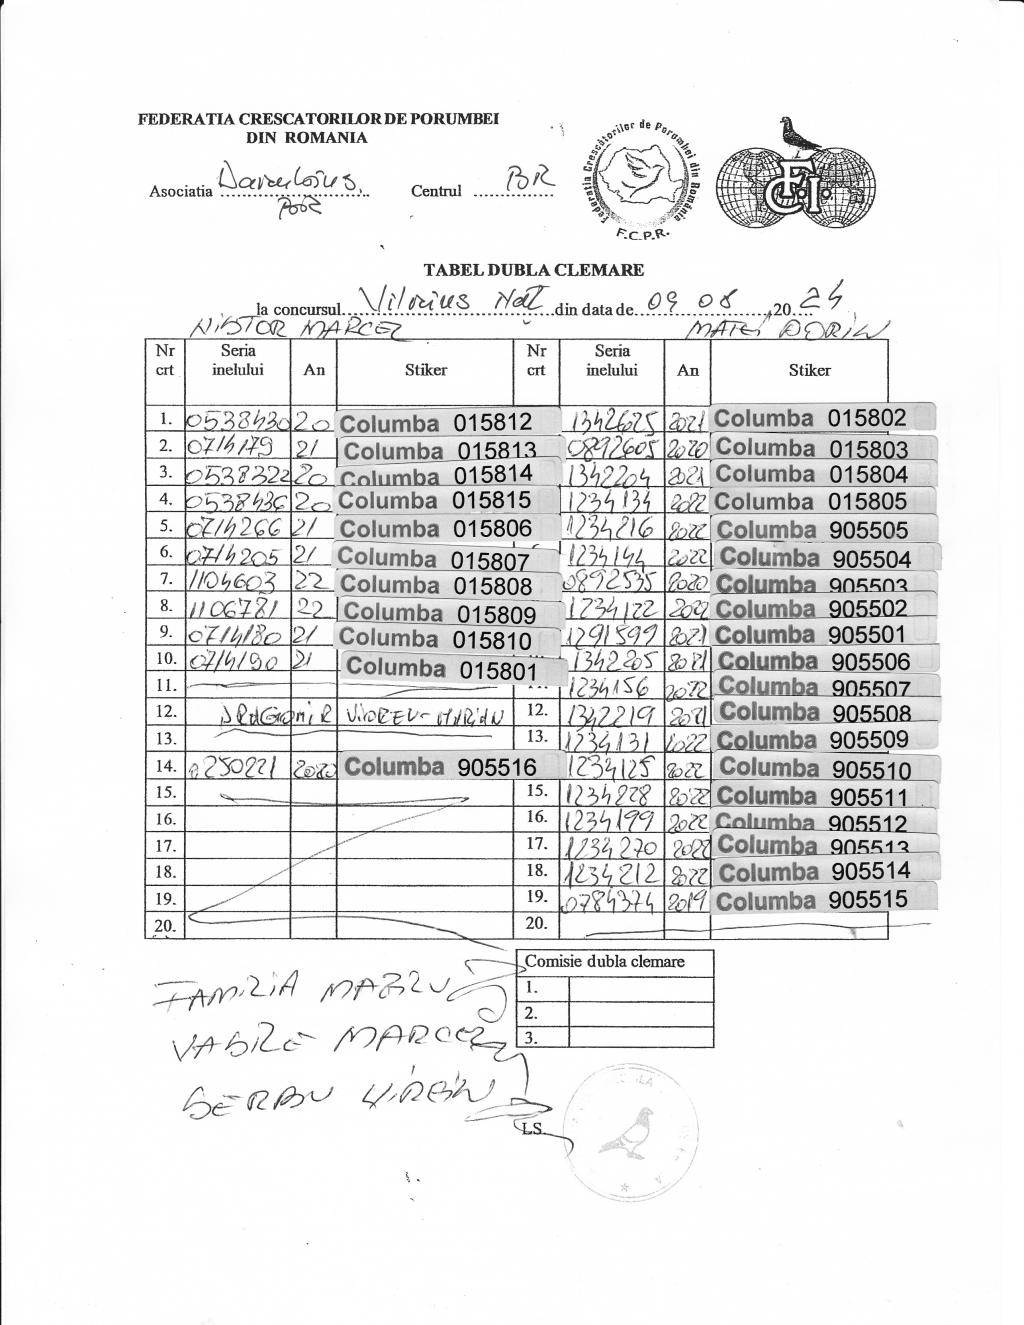 FEDERATIA CRESCATORILOR DE PORUMBEI
DIN ROMANIA
Asociatia
Centrul BR
BR
Federatia Crescătorilor de Porumbei din România
F.C.P.R.
F.C.I.
TABEL DUBLA CLEMARE
la concursul Vilnius Naț din data de 09 08, 20 24
NISTOR MARCEL MATEI DORIN
Nr crt Seria inelului An Stiker Nr crt Seria inelului An Stiker
1. 0538430 20 Columba 015812 1342625 2021 Columba 015802
2. 0714179 21 Columba 015813 0892605 2020 Columba 015803
3. 0538322 20 Columba 015814 1342204 2021 Columba 015804
4. 0538436 20 Columba 015815 1234134 2022 Columba 015805
5. 0714266 21 Columba 015806 1234216 2022 Columba 905505
6. 0714205 21 Columba 015807 1234144 2022 Columba 905504
7. 1104603 22 Columba 015808 0892535 2020 Columba 905503
8. 1106781 22 Columba 015809 1234122 2022 Columba 905502
9. 0714180 21 Columba 015810 1291599 2021 Columba 905501
10. 0714190 21 Columba 015801 1342205 2021 Columba 905506
11. 1234156 2022 Columba 905507
12. DRAGOMIR VIOREL-MARIAN 12. 1342219 2021 Columba 905508
13. 13. 1234131 2022 Columba 905509
14. 0250221 2020 Columba 905516 1234125 2022 Columba 905510
15. 15. 1234228 2022 Columba 905511
16. 16. 1234199 2022 Columba 905512
17. 17. 1234270 2022 Columba 905513
18. 18. 1234212 2022 Columba 905514
19. 19. 0784374 2019 Columba 905515
20. 20.
Comisie dubla clemare
1.
2.
3.
FAMILIA MAZILU
VASILE MARCEL
SERBAN
LS.